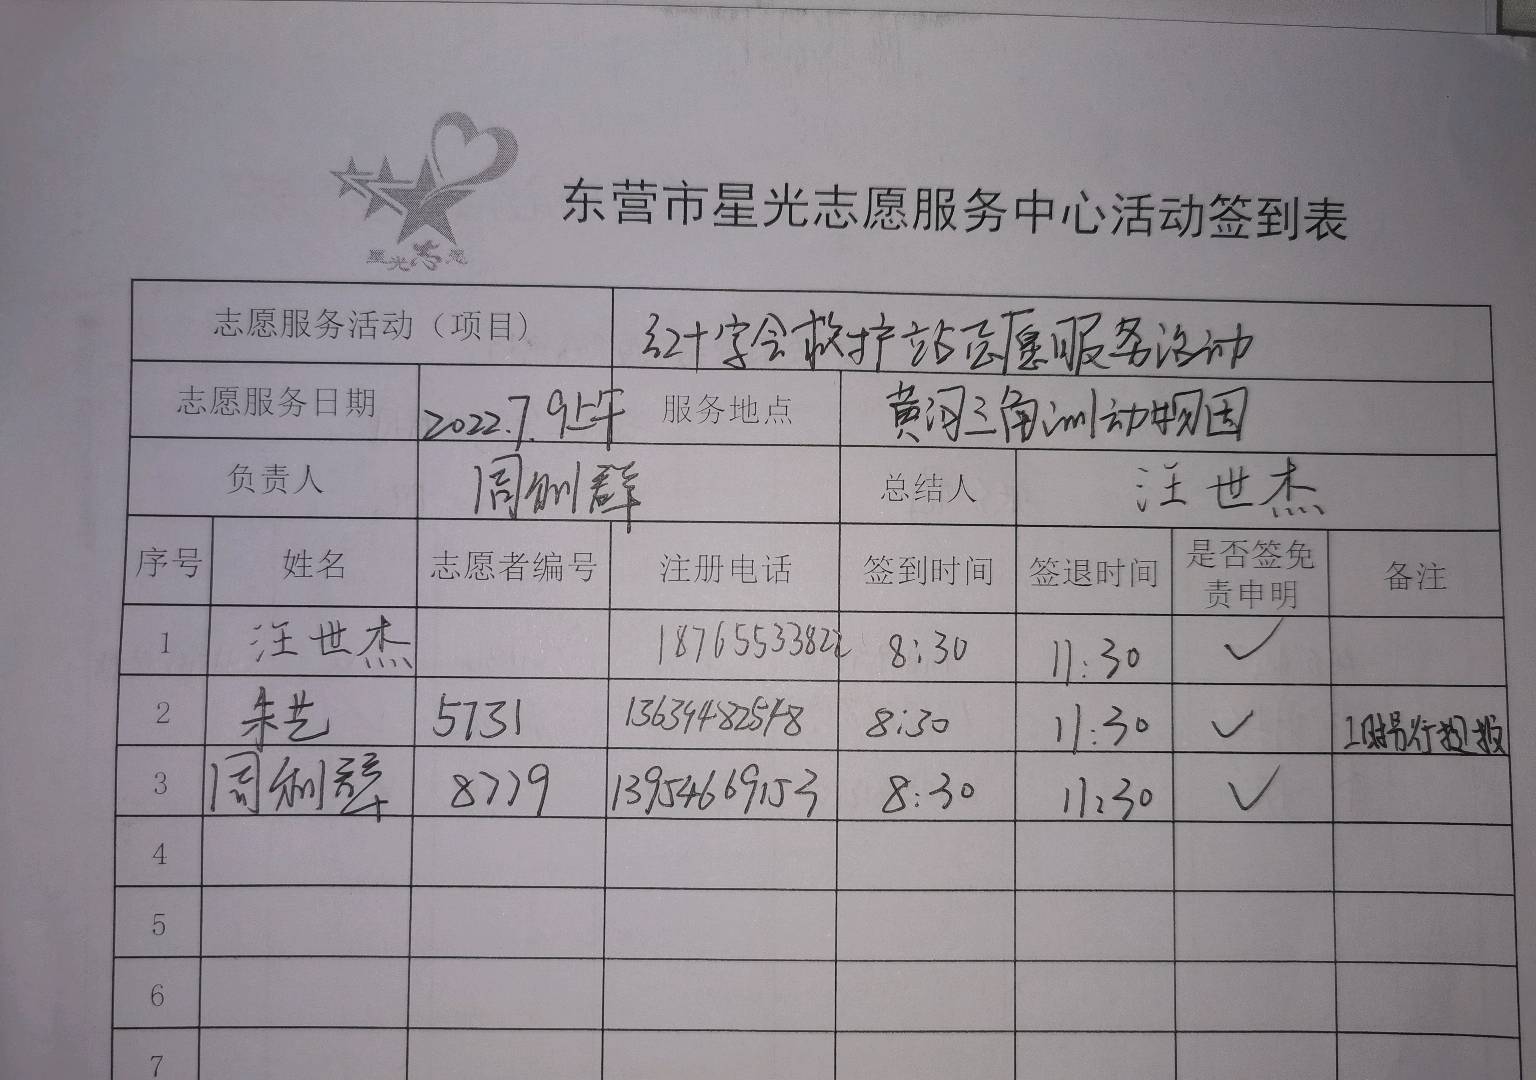 星光志愿
东营市星光志愿服务中心活动签到表
志愿服务活动（项目） 红十字会救护站志愿服务活动
志愿服务日期 2022.7.9上午 服务地点 黄河三角洲动物园
负责人 周利群 总结人 汪世杰
序号 姓名 志愿者编号 注册电话 签到时间 签退时间 是否签免责申明 备注
1 汪世杰 18765533822 8:30 11:30 ✓
2 朱艺 5731 13639482548 8:30 11:30 ✓
3 周利群 8779 13954669153 8:30 11:30 ✓
4
5
6
7